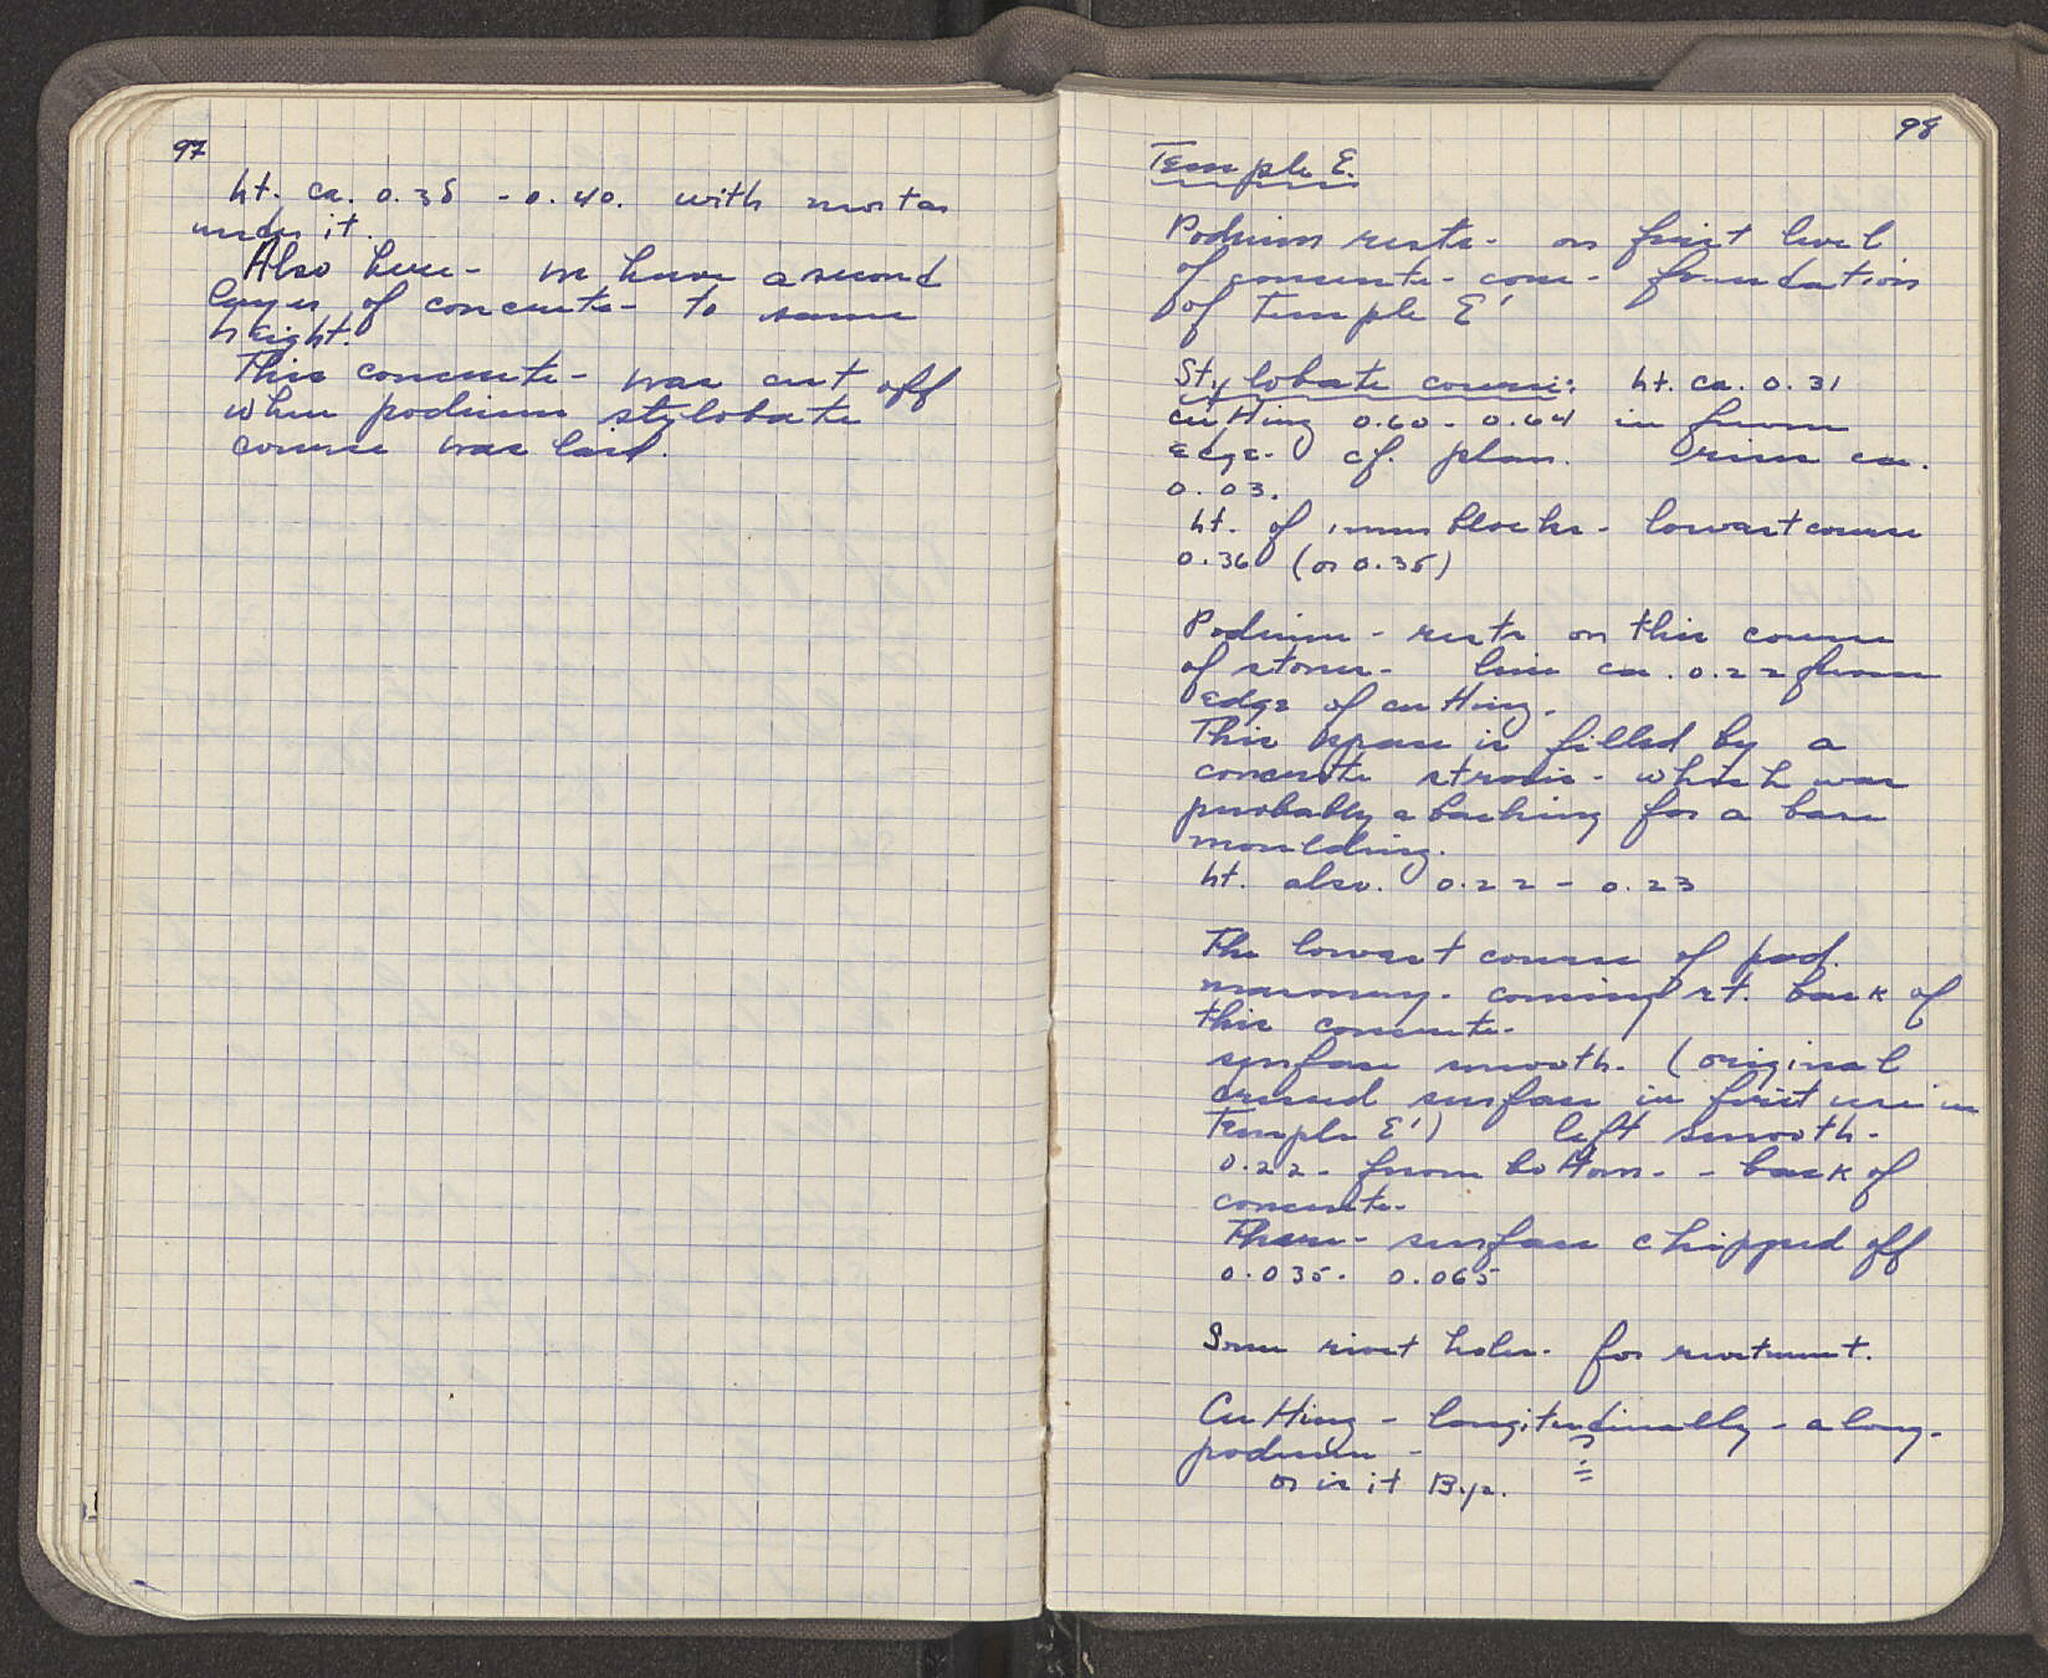 97
ht. ca. 0.35 - 0.40. with mortar
under it.
Also here - we have a second
layer of concrete - to same
height.
This concrete - was cut off
when podium stylobate
course was laid.
98
Temple E.
Podium rests - on first level
of concrete - core - foundation
of Temple E'
Stylobate course: ht. ca. 0.31
cutting 0.60 - 0.64 in from
edge. cf. plan. rim ca.
0.03.
ht. of inner blocks - lowest course
0.36 (or 0.35)
Podium - rests on this course
of stones - line ca. 0.22 from
edge of cutting.
This space is filled by a
concrete - which was
probably a backing for a base
moulding.
ht. also. 0.22 - 0.23
The lowest course of pod.
masonry. coming rt. back of
this concrete -
surface smooth. (original
surface in first use in
Temple E') left smooth -
0.22 - from bottom - - back of
concrete -
There - surface chipped off
0.035 - 0.065
Some rivet holes - for revetment.
Cutting - longitudinally - along -
podium - ?
or is it Byz.